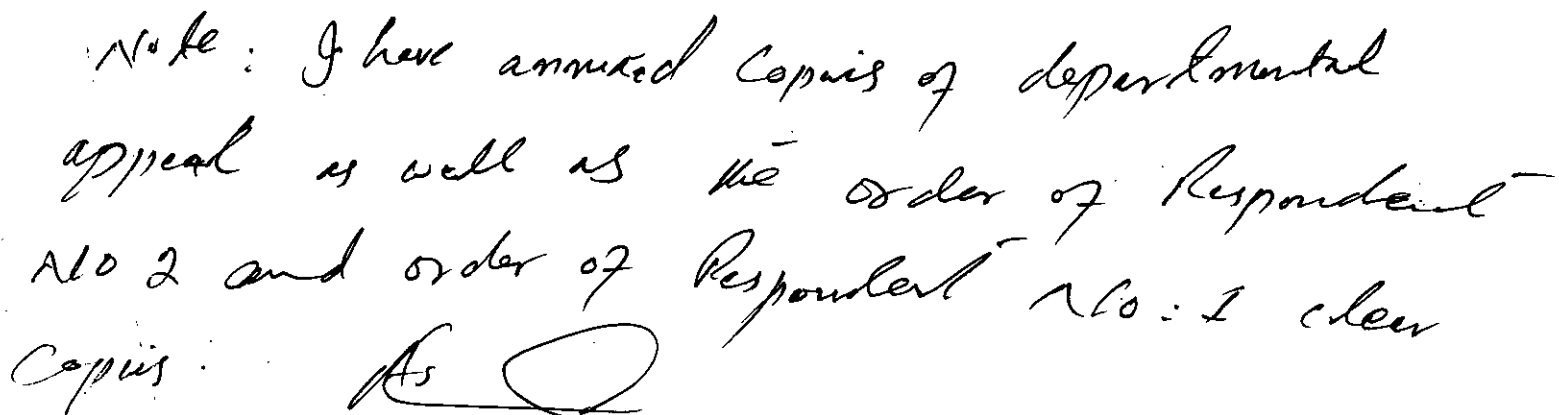 Note: I have annexed Copies of departmental
appeal as well as the order of Respondent
No 2 and order of Respondent No: 1 clear
Copies.